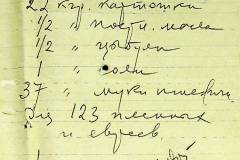 22 кгр. картошки
1/2 " постн. масла
1/2 " цыбули
1 " соли
37 " муки пшенич.
для 123 пленных
и евреев.